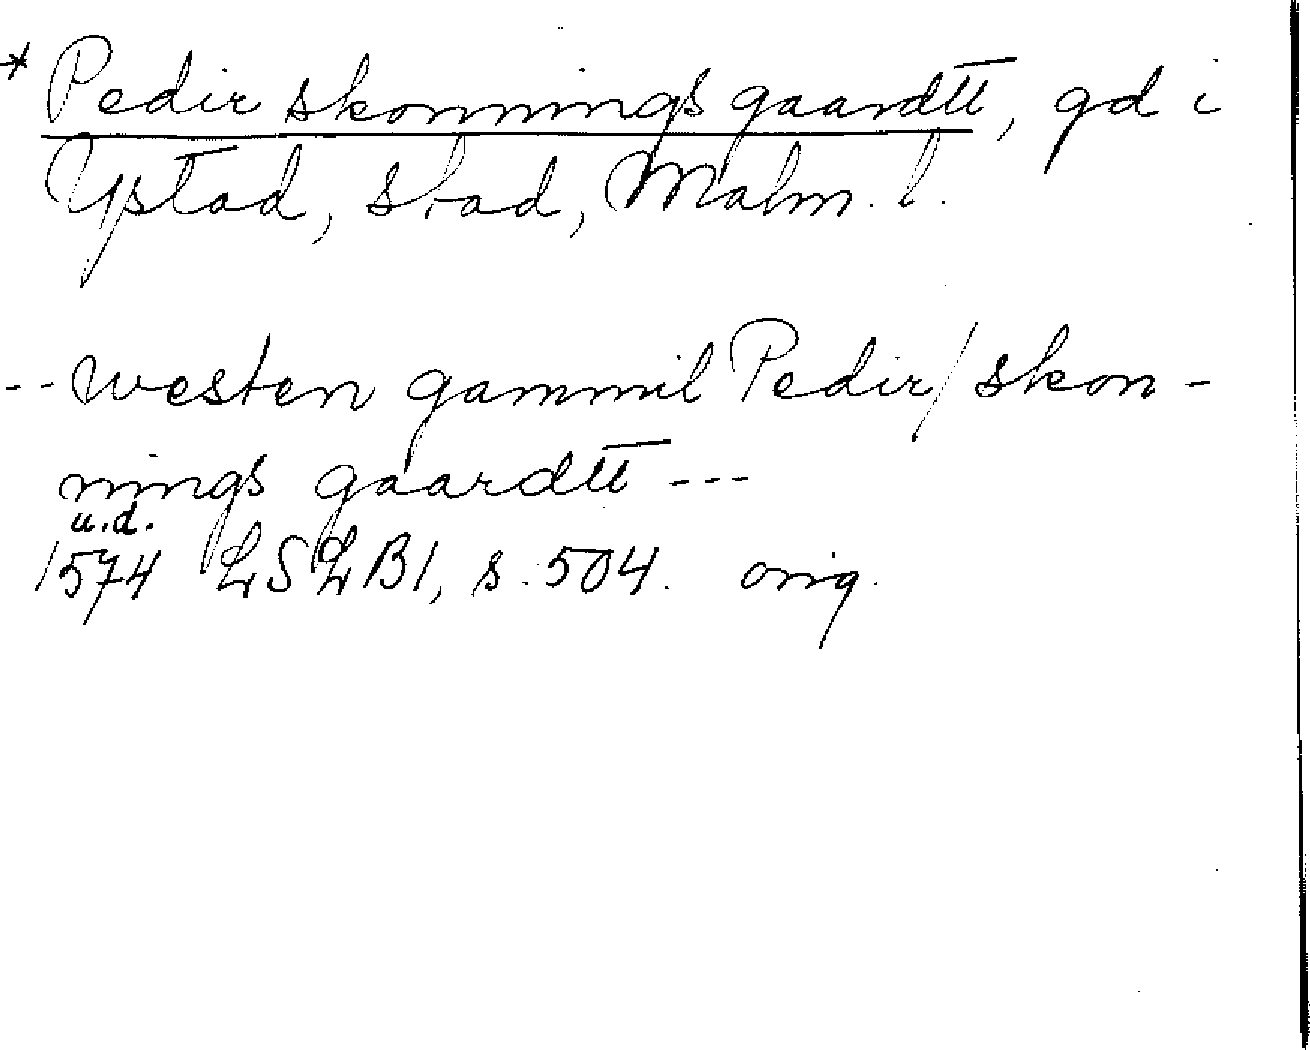 * Pedir skonnings gaardtt, gd i
Ystad, stad, Malm. l.
-- westen gammil Pedir/skon-
nings gaardtt ---
u.d.
1574 LSLB1, s. 504. orig.